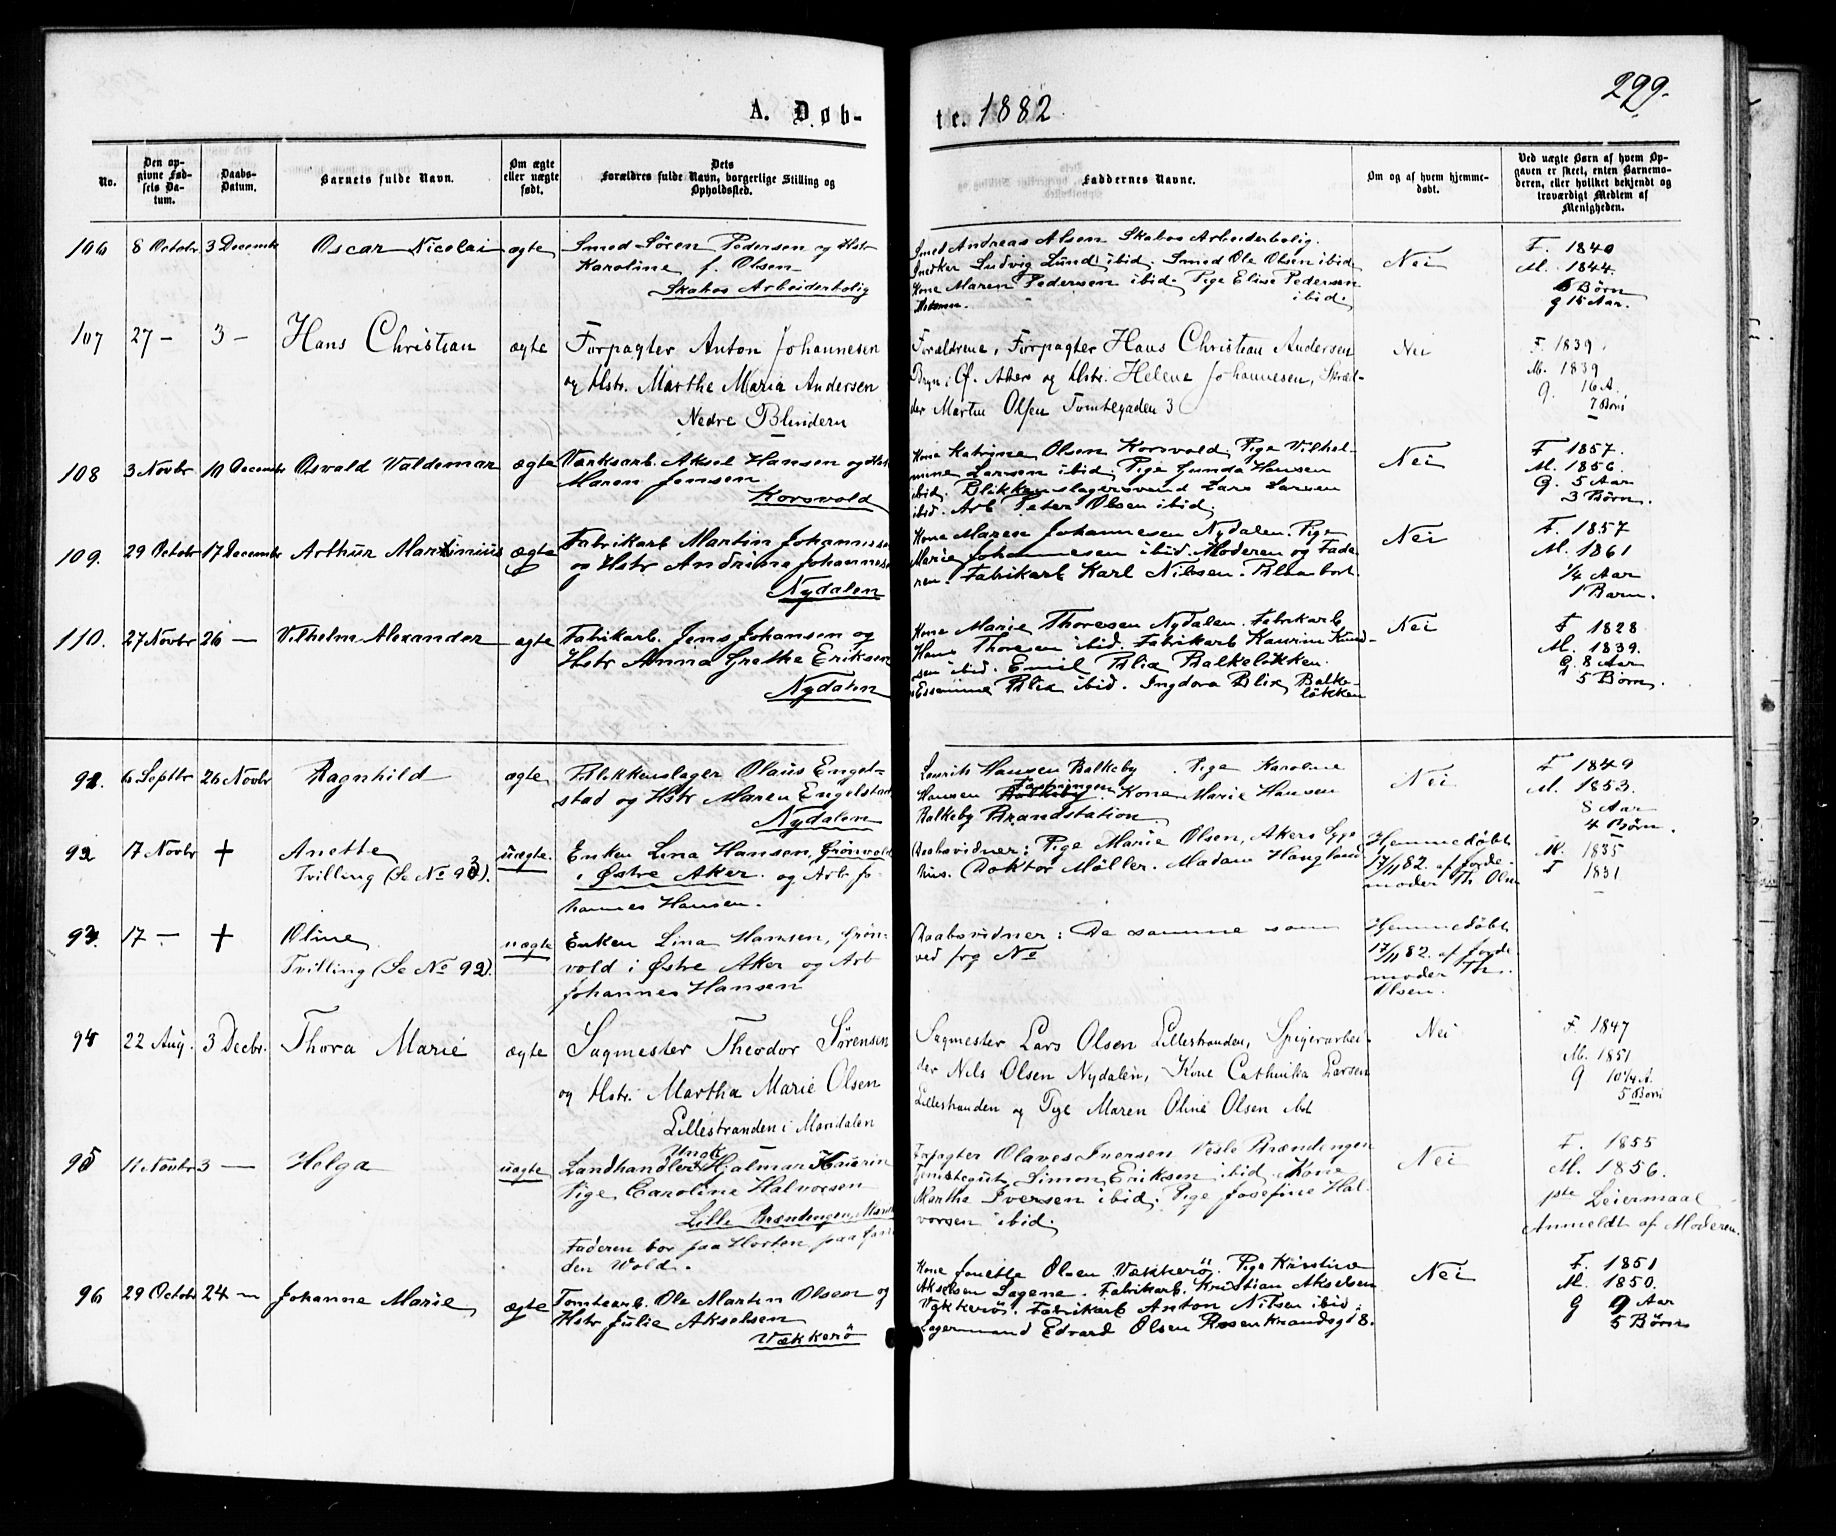 299.
A. Døb-
te. 1882.
No.
Den op-
givne Fød-
sels Da-
tum.
Daabs-
Datum.
Barnets fulde Navn.
Om ægte
eller uægte
født.
Dets
Forældres fulde Navn, borgerlige Stilling og
Opholdssted.
Faddernes Navne.
Om og af hvem hjemme-
døbt.
Ved uægte Børn af hvem Op-
gaven er skeet, enten Barnemo-
deren, eller hvilket bekjendt og
troværdigt Medlem af
Menigheden.
106 8 Octobr 3 Decembr Oscar Nicolai ægte
Smed Søren Pedersen og Hstr
Karoline f. Olsen
Skabos Arbeiderbolig
Smed Andreas Olsen Skabos Arbeiderbolig.
Snedker Ludvig Lund ibid. Smed Ole Olsen ibid
Kone Maren Pedersen ibid. Pige Elise Pedersen
ibid.
Nei
F. 1840
M. 1844.
Børn
g 15 Aar.
107 27 — 3 — Hans Christian ægte
Forpagter Anton Johannesen
og Hstr. Marthe Maria Andersen
Nedre Blindern
Forældrene, Forpagter Hans Christian Andersen
Bryn i Ø. Aker og Hstr. Helene Johannesen, Skræd-
der Martin Olsen Tomtegaden 3
Nei
F. 1839.
M. 1839
g. 16 A.
7 Børn
108 3 Novbr 10 Decembr Osvald Valdemar ægte
Værksarb. Aksel Hansen og Hstr
Maren Jensen
Korsvold
Kone Katrine Olsen Korsvold, Pige Vilhel-
mine Larsen ibid. Pige Gunda Hansen
ibid. Blikkenslagersvend Lars Larsen
ibid. Arb Peter Olsen ibid.
Nei
F 1857.
M. 1856.
G. 5 Aar
3 Børn.
109. 29 Octobr 17 Decembr Arthur Martinius ægte
Fabrikarb Martin Johannesen
og Hstr Andrine Johannesen
Nydalen
Kone Maren Johannesen Nydalen. Pige
Marie Johannesen ibid. Moderen og Fade-
ren. Fabrikarb Karl Nilsen.
Nei
F. 1857
M. 1861
1/4 Aar
1 Barn.
110. 27 Novbr 26 — Vilhelm Alexander ægte
Fabrikarb. Jens Johansen og
Hstr Anna Grethe Eriksen
Nydalen
Kone Marie Thoresen Nydalen. Fabrikarb
Hans Thoresen ibid. Fabrikarb Kaurin Knud-
sen ibid. Emil Blix Balkeløkken.
Blix ibid. Ingdora Blix Balke-
løkken
Nei
F 1828
M. 1839.
G. 8 Aar
5 Børn.
91. 6 Septbr 26 Novbr Ragnhild ægte
Blikkenslager Olaus Engel-
stad og Hstr Maren Engelstad
Nydalen
Laurits Hansen Balkeby. Pige Karoline
Hansen Kone Marie Hansen
Balkeby Brandstation.
Nei
F 1849
M. 1853.
8 Aar
4 Børn.
92 17 Novbr + Anette
Tvilling (Se No 93).
uægte.
Enken Lina Hansen, Grønvold
i Østre Aker. og Arb Jo-
hannes Hansen.
Daabsvidner: Pige Marie Olsen, Akers Syge-
hus. Doktor Møller. Madam Haugland
Hjemmedøbt
17/11 82. af Jorde-
moder Th Olsen
M. 1835
F 1831
93. 17 — + Oline
Tvilling (Se No 92).
uægte
Enken Lina Hansen, Grøn-
vold i Østre Aker og Arb
Johannes Hansen
Daabsvidner: De samme som
ved frg No
Hjemmedøbt
17/11 82. af Jorde-
moder Th.
Olsen.
94 22 Aug. 3 Decbr. Thora Marie ægte
Sagmester Theodor Sørensen
og Hstr. Martha Marie Olsen
Lillestranden i Maridalen
Sagmester Lars Olsen Lillestranden, Spigerarbei-
der Nils Olsen Nydalen, Kone Cathrika Larsen
Lillestranden og Pige Maren Oline Olsen ibd
Nei
F. 1847
M. 1851
g 10 1/4 A.
5 Børn
95 11 Novbr 3 — Helga uægte
Ungk.
Landhandler Hjalmar Kaurin
Pige Caroline Halvorsen
Lille Brændingen, Marid
Faderen bor paa Horten, paa Jern
den Wold.
Forpagter Olaves Iversen Vesle Brændingen
Simon Eriksen ibid. Kone
Martha Iversen ibid. Pige Josefine Hal-
vorsen ibid.
Nei
F. 1855
M. 1856.
pte Leiermaal
Anmeldt af Moderen.
96 29 Octobr 24 — Johanne Marie ægte
Tomtearb. Ole Martin Olsen og
Hstr Julie Akselsen
Vækkerö
Kone Jonette Olsen Vækkerö. Pige Kristine
Akselsen Sagene. Fabrikarb. Kristian Akselsen
Vækkerö. Fabrikarb Anton Nilsen ibid.
Lagermand Edvard Olsen Rosenkrandsgd 8.
Nei
F. 1851
M. 1850.
G 9 Aar
5 Børn